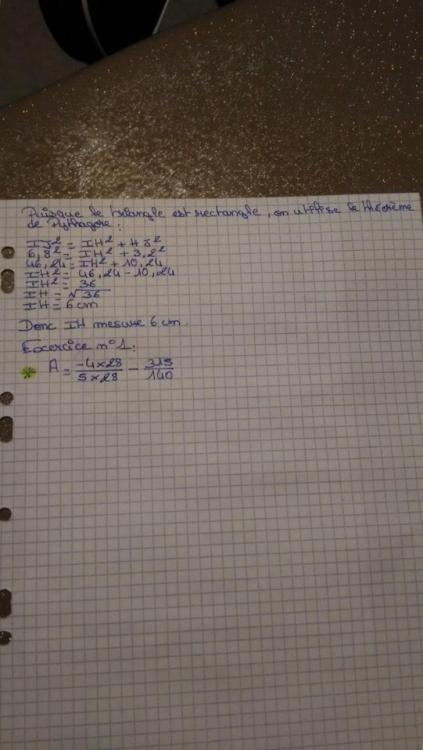 Puisque le triangle est rectangle, on utilise le théorème
de Pythagore :
IJ² = IH² + HJ²
6,8² = IH² + 3,2²
46,24 = IH² + 10,24
IH² = 46,24 - 10,24
IH² = 36
IH = √36
IH = 6 cm
Donc IH mesure 6 cm.
Exercice n°1:
* A = -4×28/5×28 - 315/140